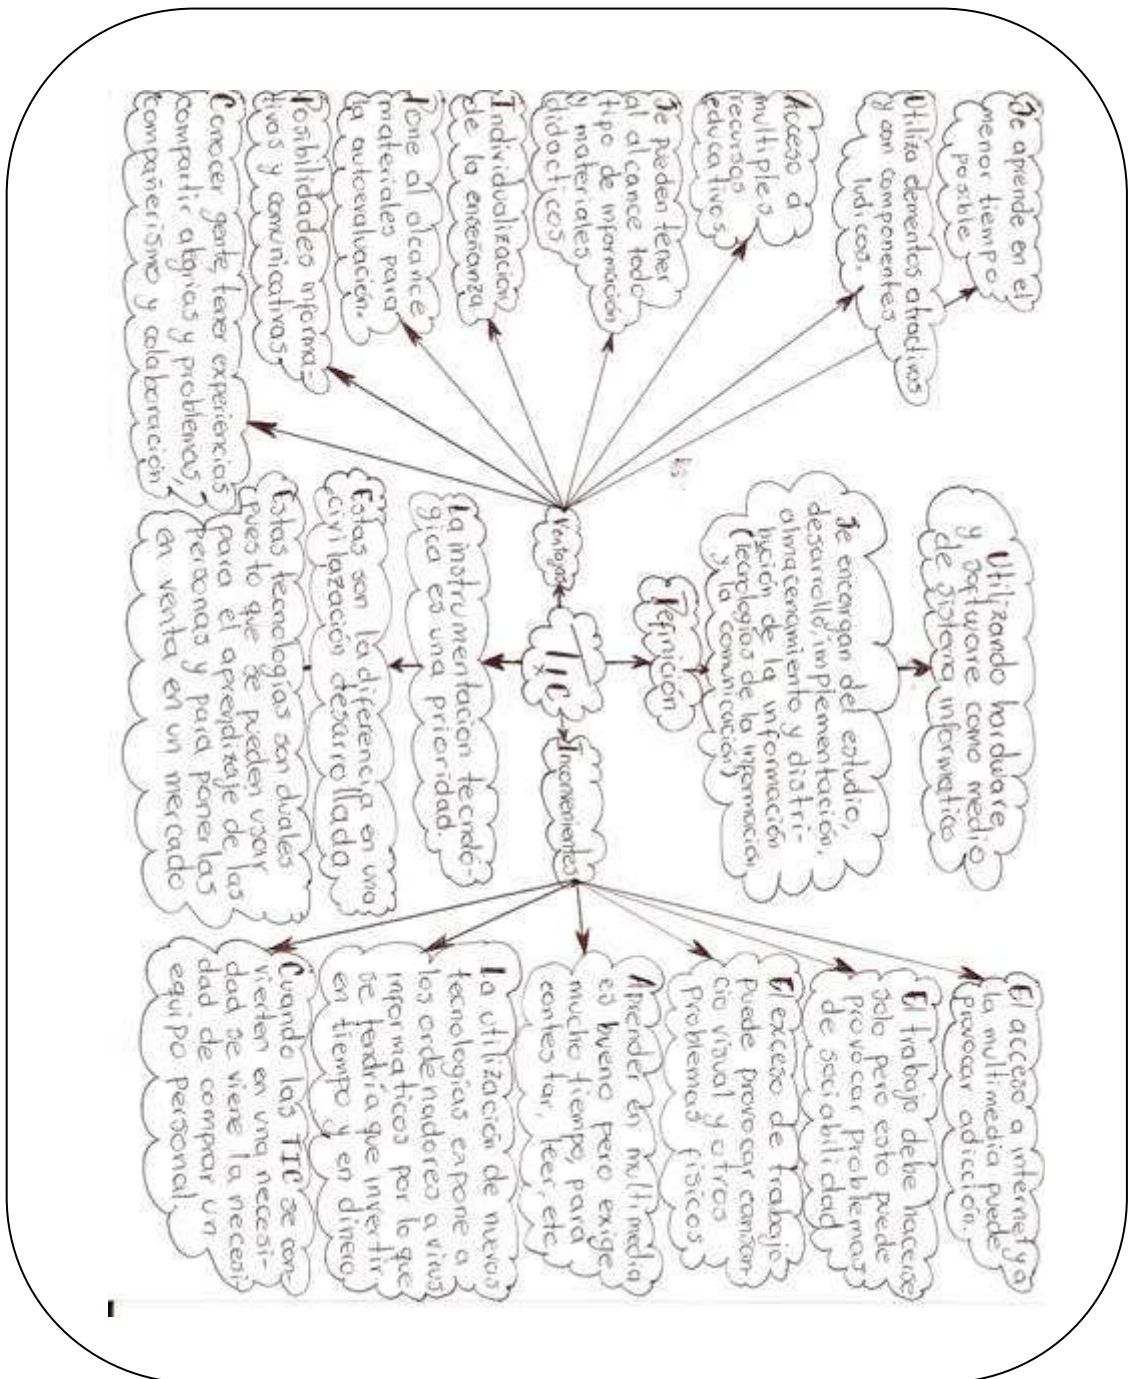 Utilizando hardware
y software como medio
de sistema informatico
Se encargan del estudio,
desarrollo, implementación,
almacenamiento y distri-
bución de la información
(tecnologías de la información
y la comunicación)
Definición
TIC
Ventajas
Inconvenientes
Se aprende en el
menor tiempo
posible
Utiliza elementos atractivos
y con componentes
ludicos.
Acceso a
multiples
recursos
educativos
Se pueden tener
al alcance todo
tipo de información
y materiales
didacticos.
Individualización
de la enseñanza
Pone al alcance
materiales para
la autoevaluación.
Posibilidades informa-
tivas y comunicativas.
Conocer gente, tener experiencias
compartir alegrias y problemas,
compañerismo y colaboración
La instrumentación tecnoló-
gica es una prioridad
Estas son la diferencia en una
civilazación desarrollada
Estas tecnologías son duales
puesto que se pueden usar
para el aprendizaje de las
personas y para ponerlas
en venta en un mercado
El acceso a internet y a
la multimedia puede
provocar adicción.
El trabajo debe hacerse
solo pero esto puede
provocar problemas
de sociabilidad
El exceso de trabajo
puede provocar cansan-
cio visual y otros
problemas fisicos
Aprender en multimedia
es bueno pero exige
mucho tiempo, para
contestar, leer, etc
La utilización de nuevas
tecnologias expone a
los ordenadores a virus
informaticos por lo que
se tendría que invertir
en tiempo y en dinero
Cuando las TIC se con-
vierten en una necesi-
dad se viene la necesi-
dad de comprar un
equipo personal